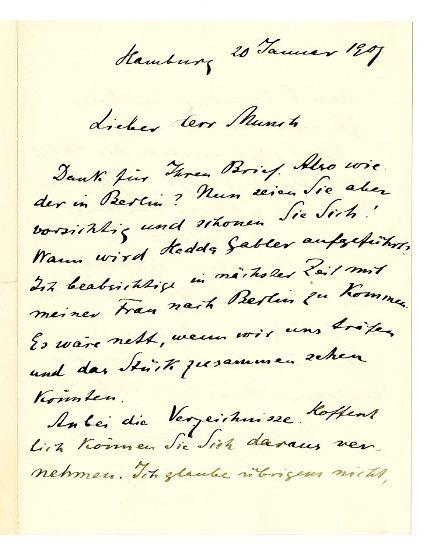 Hamburg 20 Januar 1907
Lieber Herr Munch
Dank für Ihren Brief. Also wie
der in Berlin? Nun seien Sie aber
vorsichtig und schonen Sie Sich!
Wann wird Hedda Gabler aufgeführt?
Ich beabsichtige in nächster Zeit mit
meiner Frau nach Berlin zu kommen.
Es wäre nett, wenn wir uns träfen
und das Stück zusammen sehen
könnten.
Anbei die Verzeichnisse. Hoffent
lich können Sie Sich daraus ver-
nehmen. Ich glaube übrigens nicht,